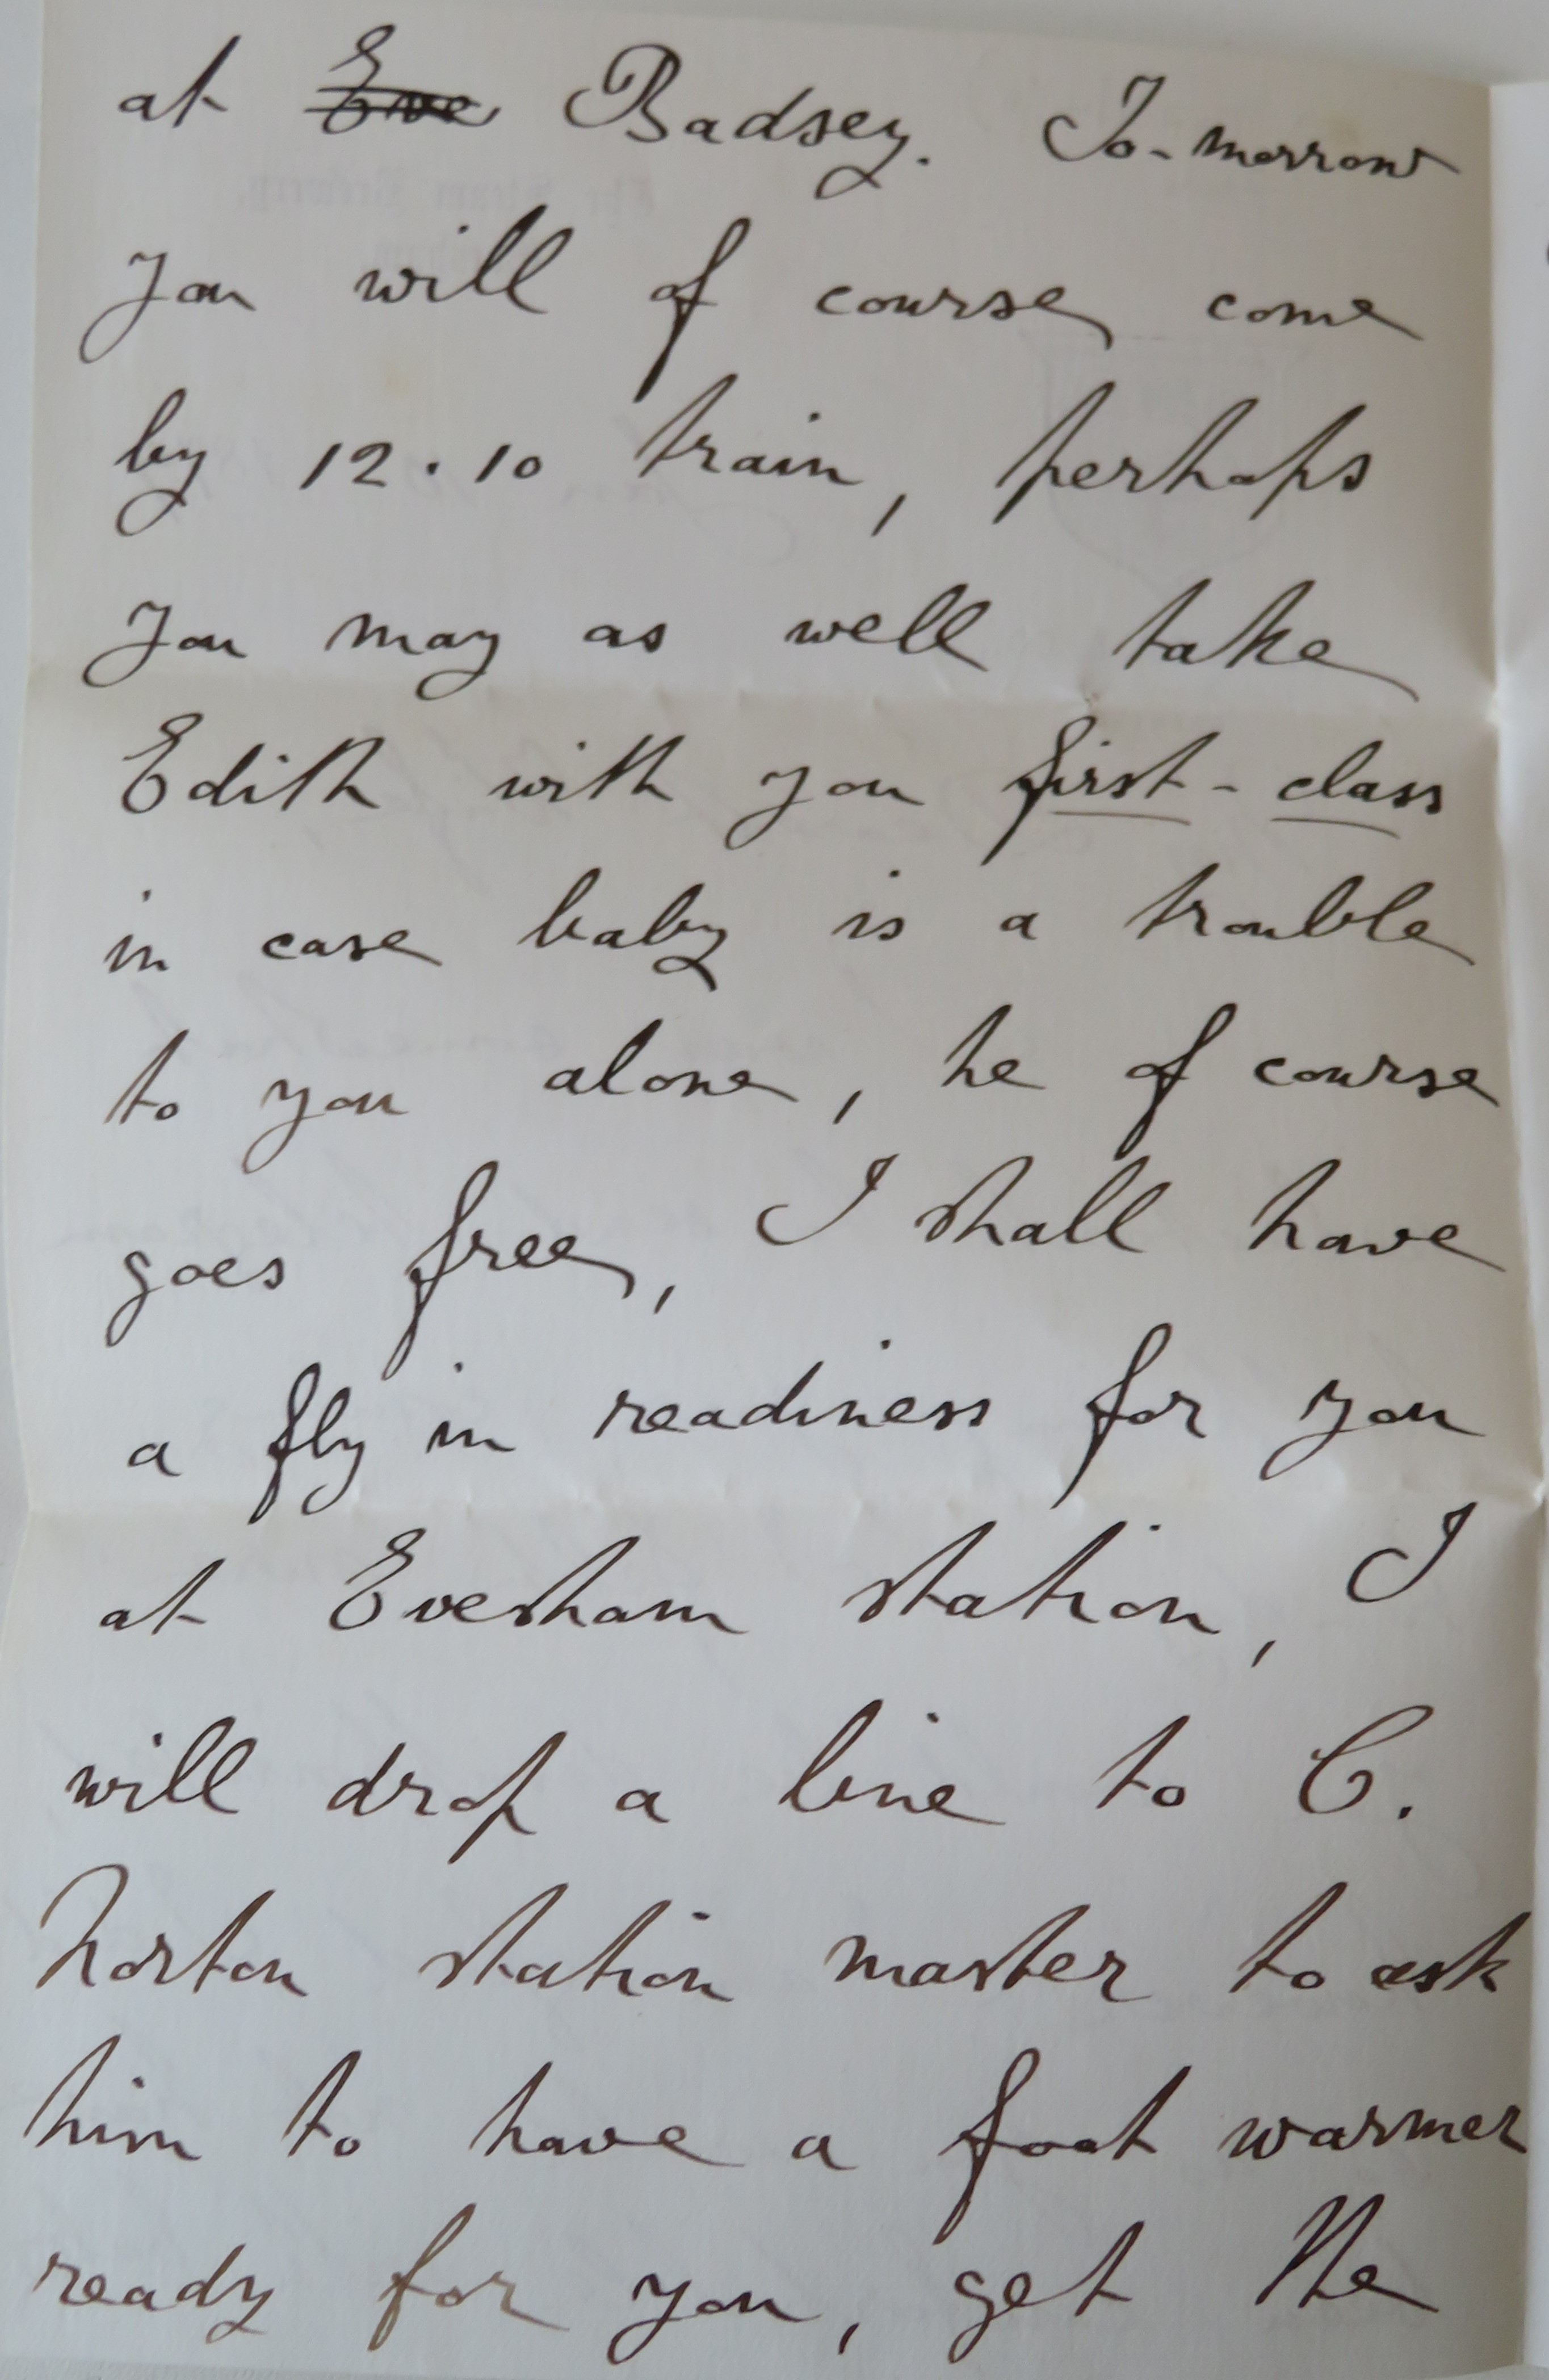 at Eve Badsey. To-morrow
you will of course come
by 12.10 train, perhaps
you may as well take
Edith with you first-class
in case baby is a trouble
to you alone, he of course
goes free, I shall have
a fly in readiness for you
at Evesham station, I
will drop a line to C.
Norton station master to ask
him to have a foot warmer
ready for you, get the